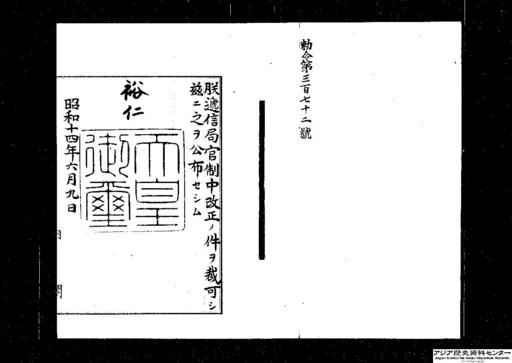 勅令第三百七十二號
朕遞信局官制中改正ノ件ヲ裁可シ
茲ニ之ヲ公布セシム
裕仁
天皇
御璽
昭和十四年六月九日
内閣
アジア歴史資料センター
Japan Center for Asian Historical Records